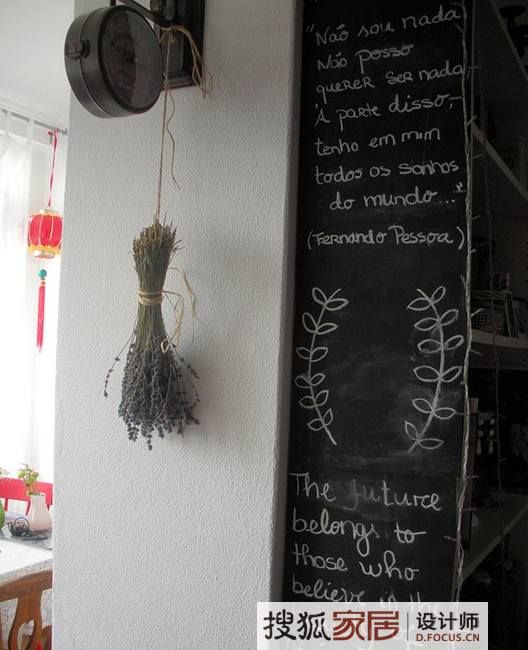 "Não sou nada
Não posso
querer ser nada,
À parte disso,
tenho em mim
todos os sonhos
do mundo..."
(Fernando Pessoa)
The future
belongs to
those who
believe in the
搜狐家居 设计师
D.FOCUS.CN